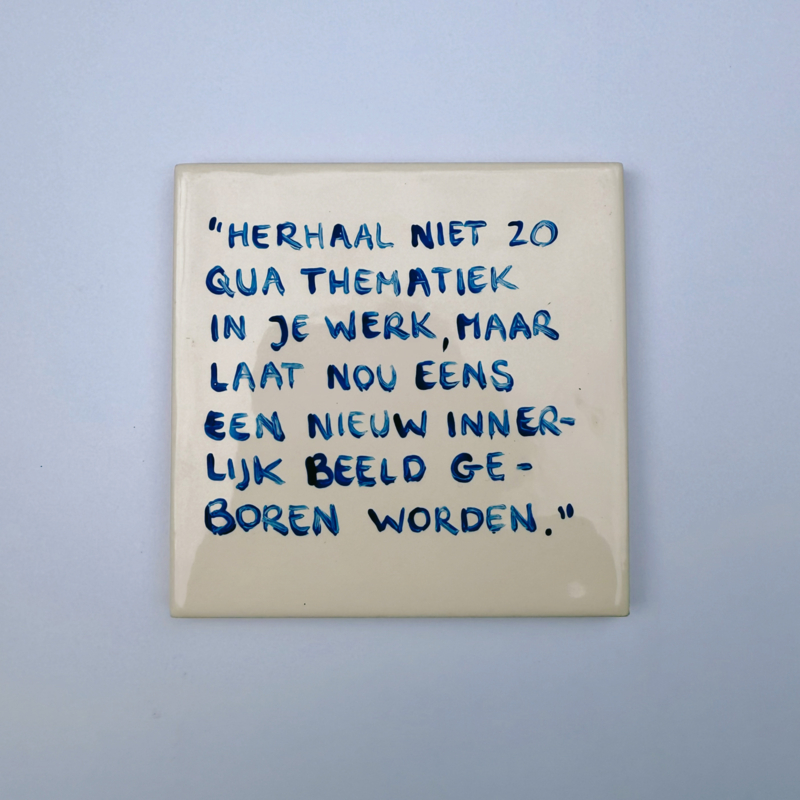 "HERHAAL NIET ZO
QUA THEMATIEK
IN JE WERK, MAAR
LAAT NOU EENS
EEN NIEUW INNER-
LIJK BEELD GE-
BOREN WORDEN."